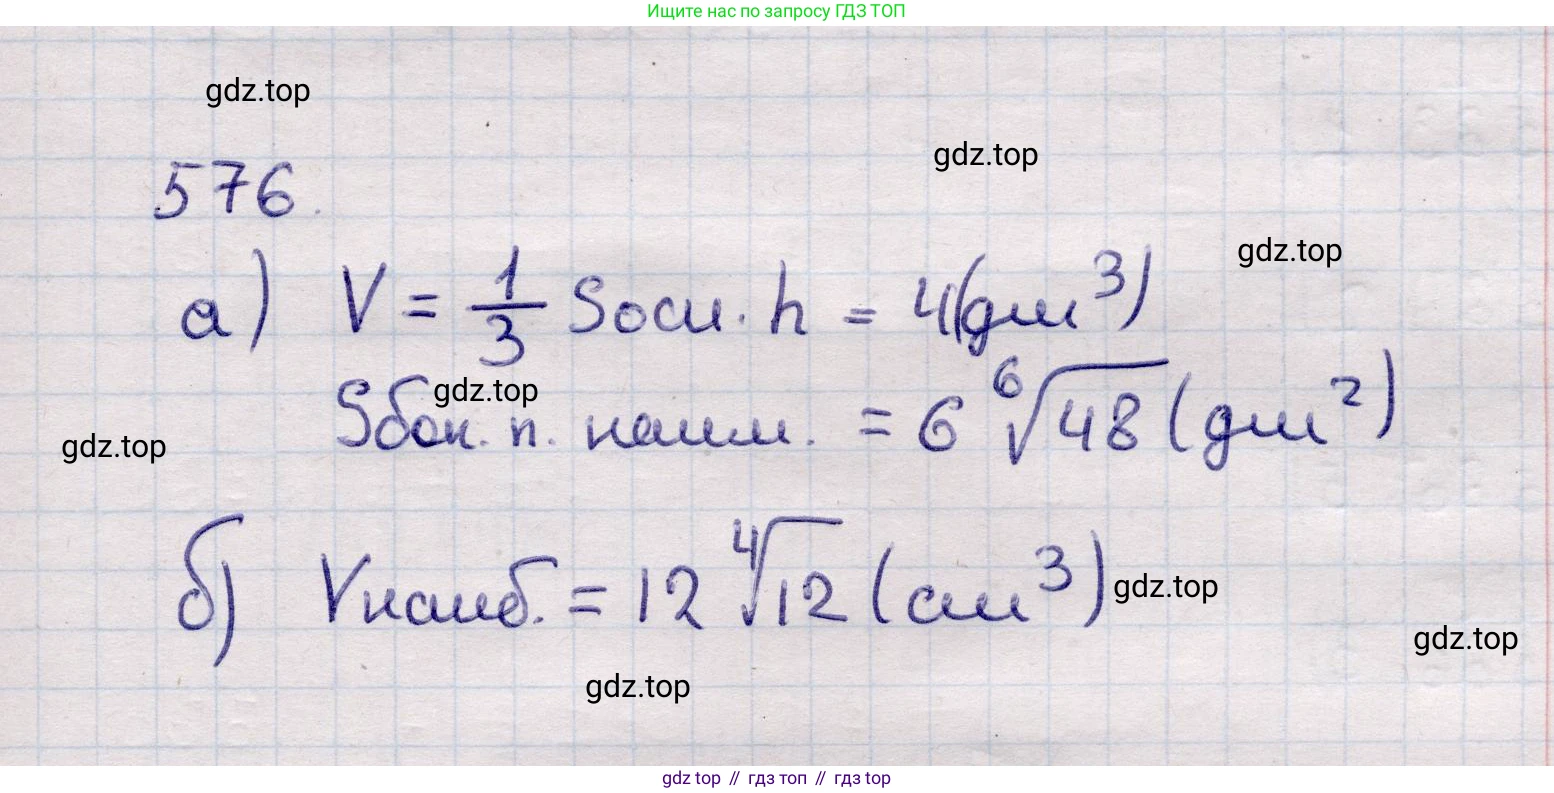 Ищите нас по запросу ГДЗ ТОП
gdz.top
gdz.top
576.
gdz.top
а) V = 1/3 Sосн. h = 4(дм³)
gdz.top
Sбок. п. наим. = 6 ⁶√48 (дм²)
gdz.top
б) Vнаиб. = 12 ⁴√12 (см³)
gdz.top
gdz.top
gdz.top
gdz top // гдз топ // гдз top